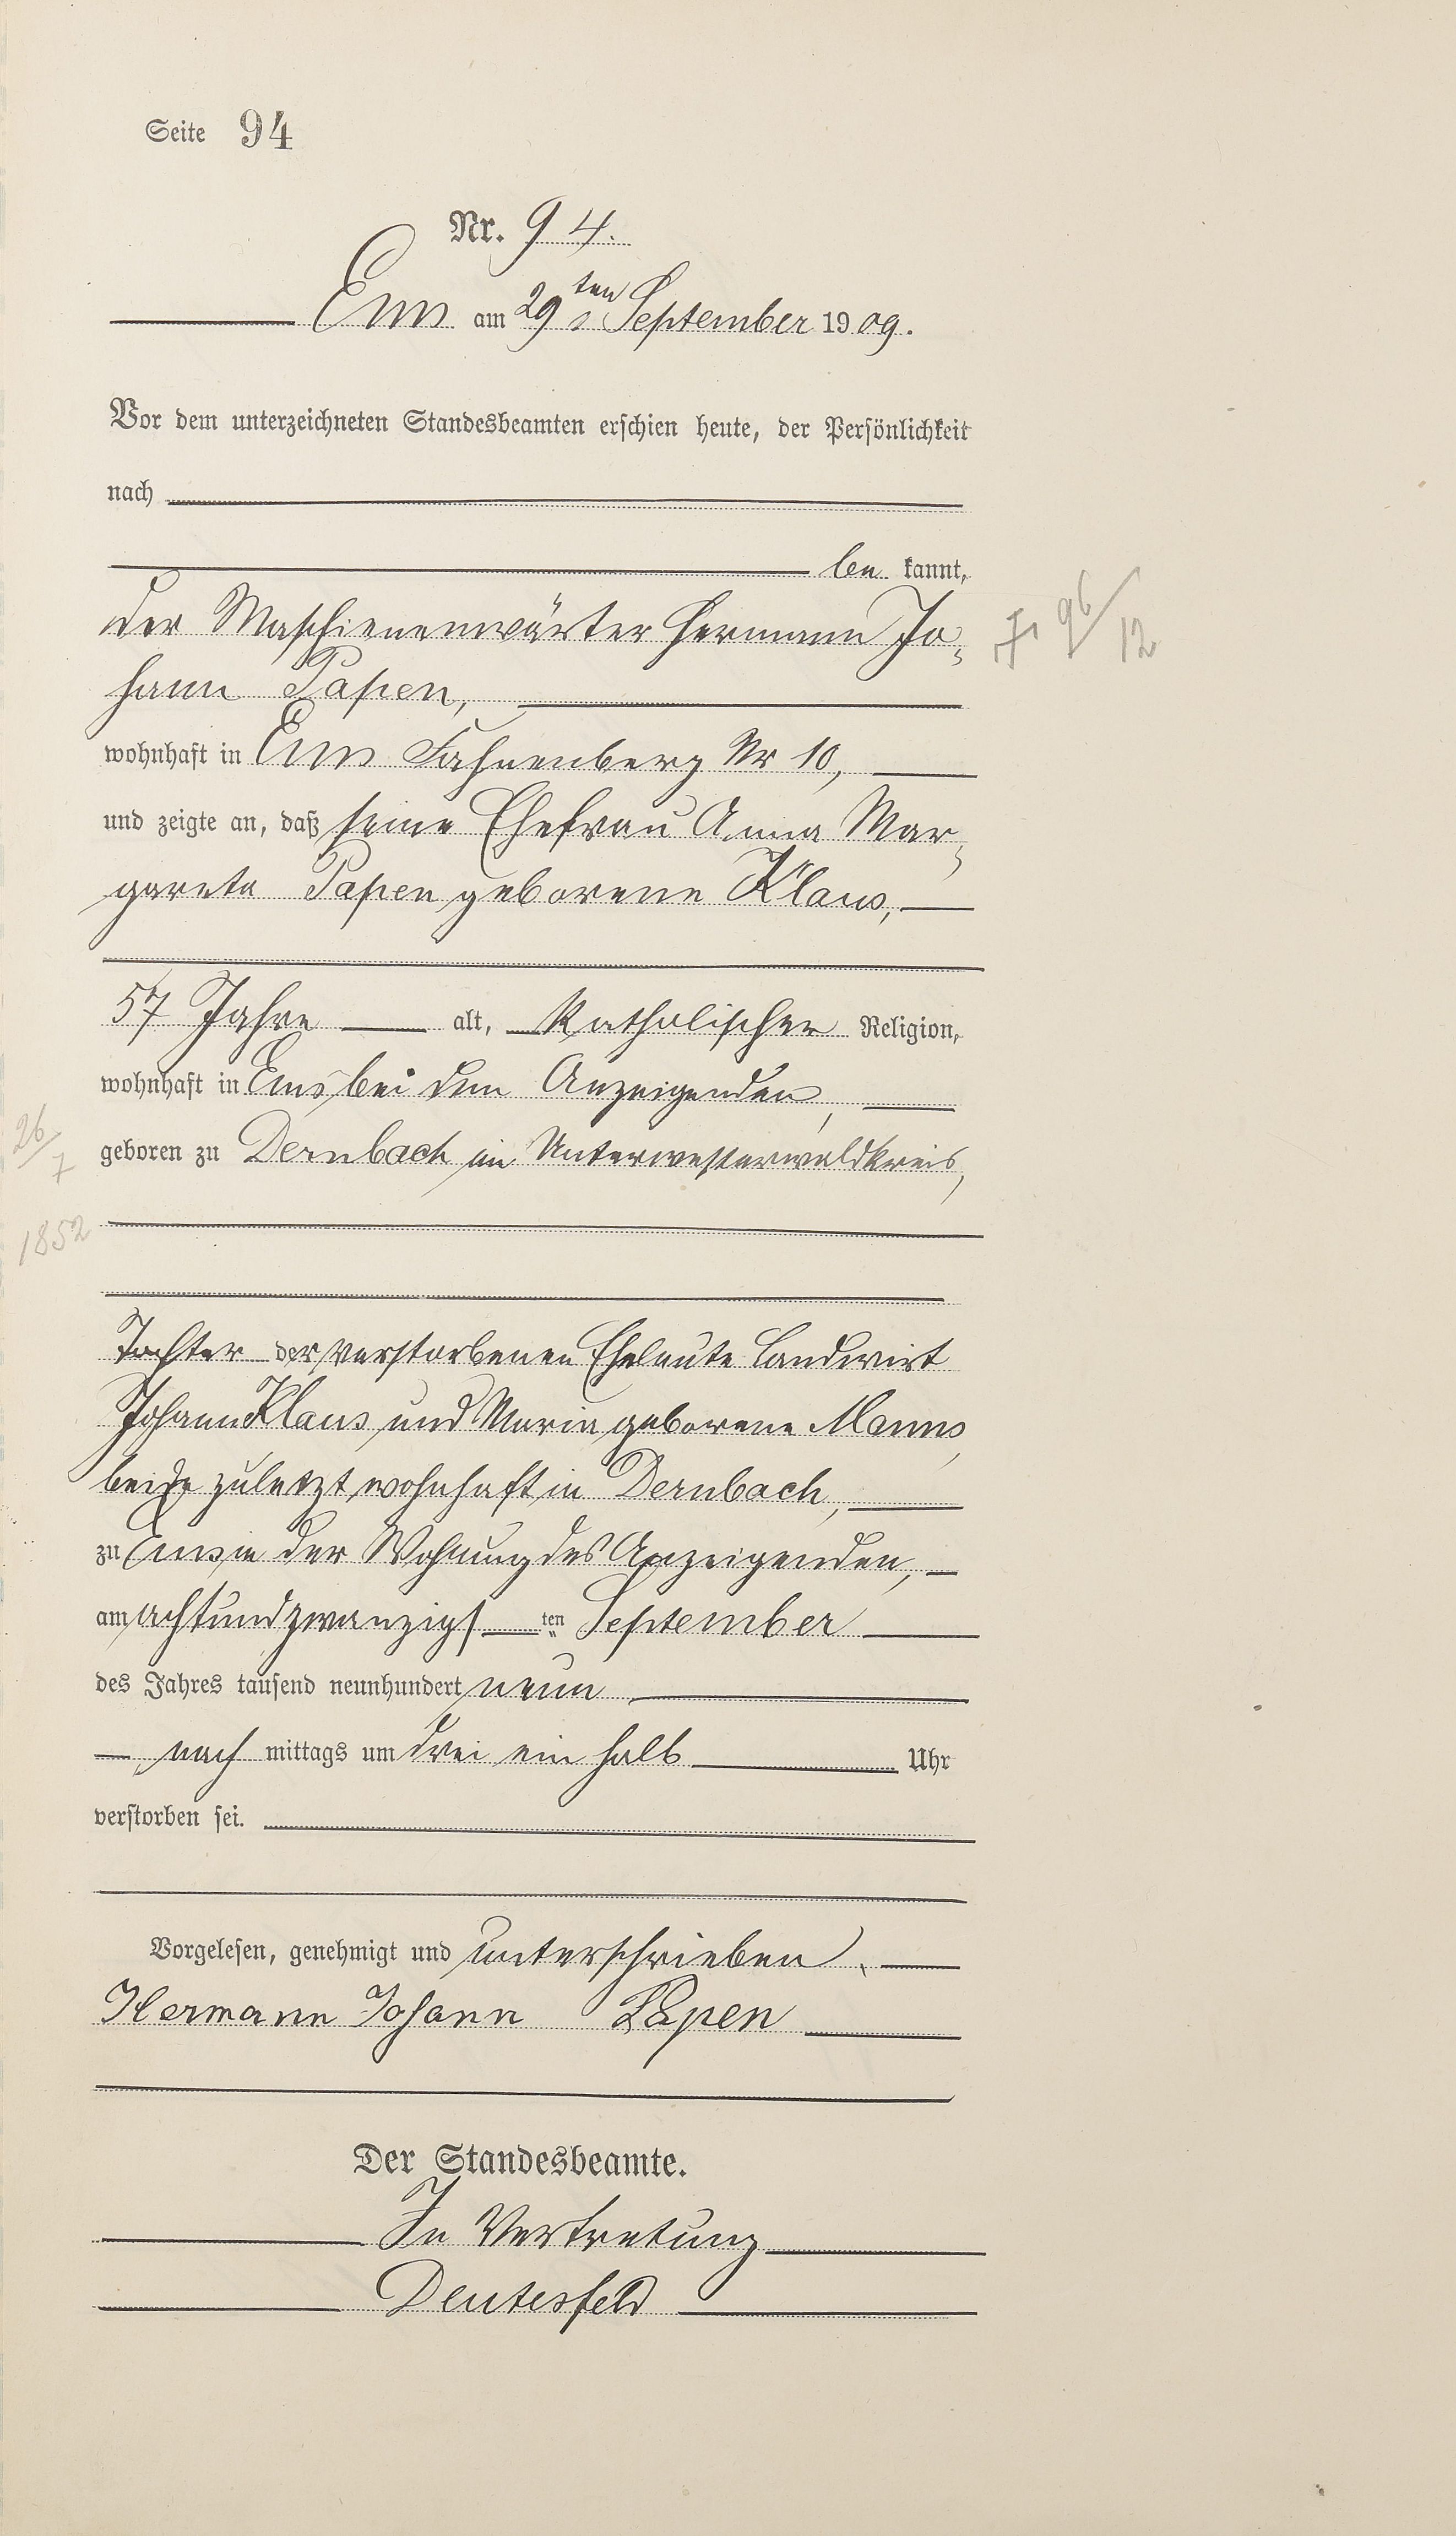 Seite 94
Nr. 94.
Ems am 29ten September 1909.
Vor dem unterzeichneten Standesbeamten erschien heute, der Persönlichkeit
nach
be kannt,
der Maschienenwärter Hermann Jo-
hann Papen,
wohnhaft in Ems Fahnenberg Nr 10,
und zeigte an, daß seine Ehefrau Anna Mar-
gareta Papen geborene Klaus,
57 Jahre alt, Katholischer Religion,
wohnhaft in Ems bei dem Anzeigenden,
geboren zu Dernbach im Unterwesterwaldkreis,
26/7
1852
Tochter der verstorbenen Eheleute Landwirt
Johann Klaus und Maria geborene Manns,
beide zuletzt wohnhaft in Dernbach,
zu Ems in der Wohnung des Anzeigenden,
am achtundzwanzigsten September
des Jahres tausend neunhundert neun
nach mittags um drei ein halb Uhr
verstorben sei.
Vorgelesen, genehmigt und unterschrieben.
Hermann Johann Papen
Der Standesbeamte.
In Vertretung
Deutesfeld